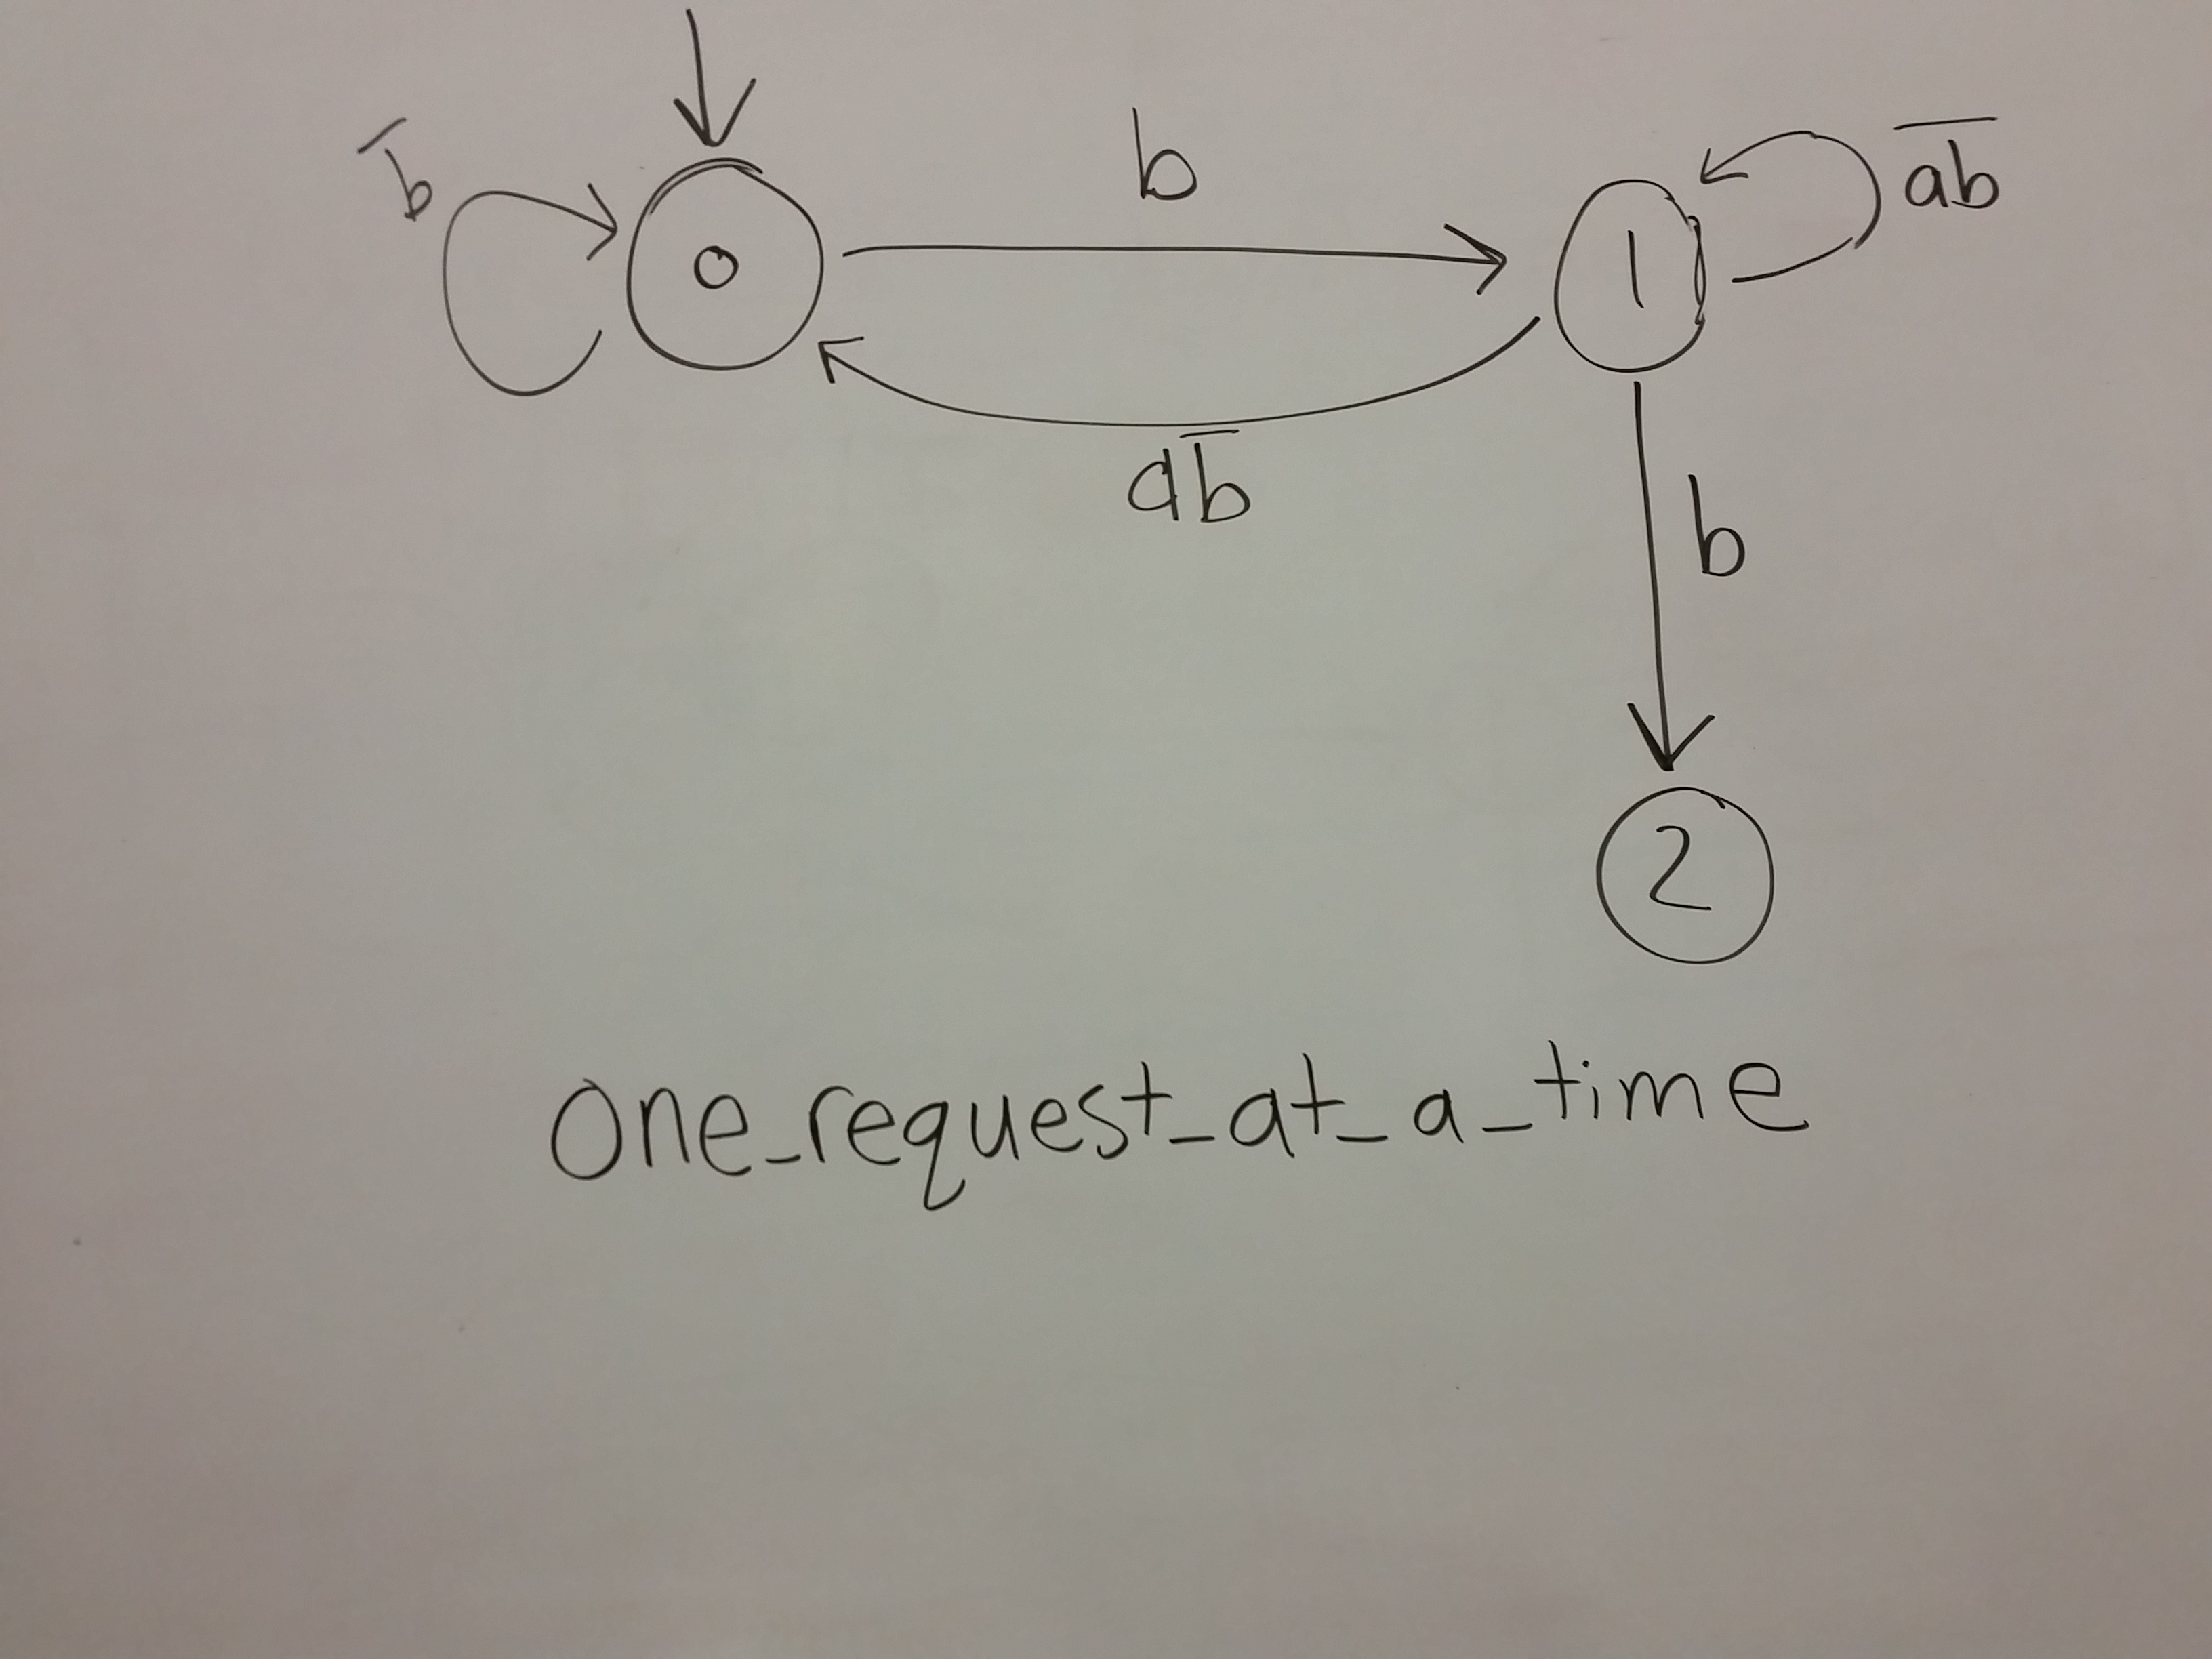 b̅
0
b
1
a̅b̅
ab̅
b
2
one_request_at_a_time